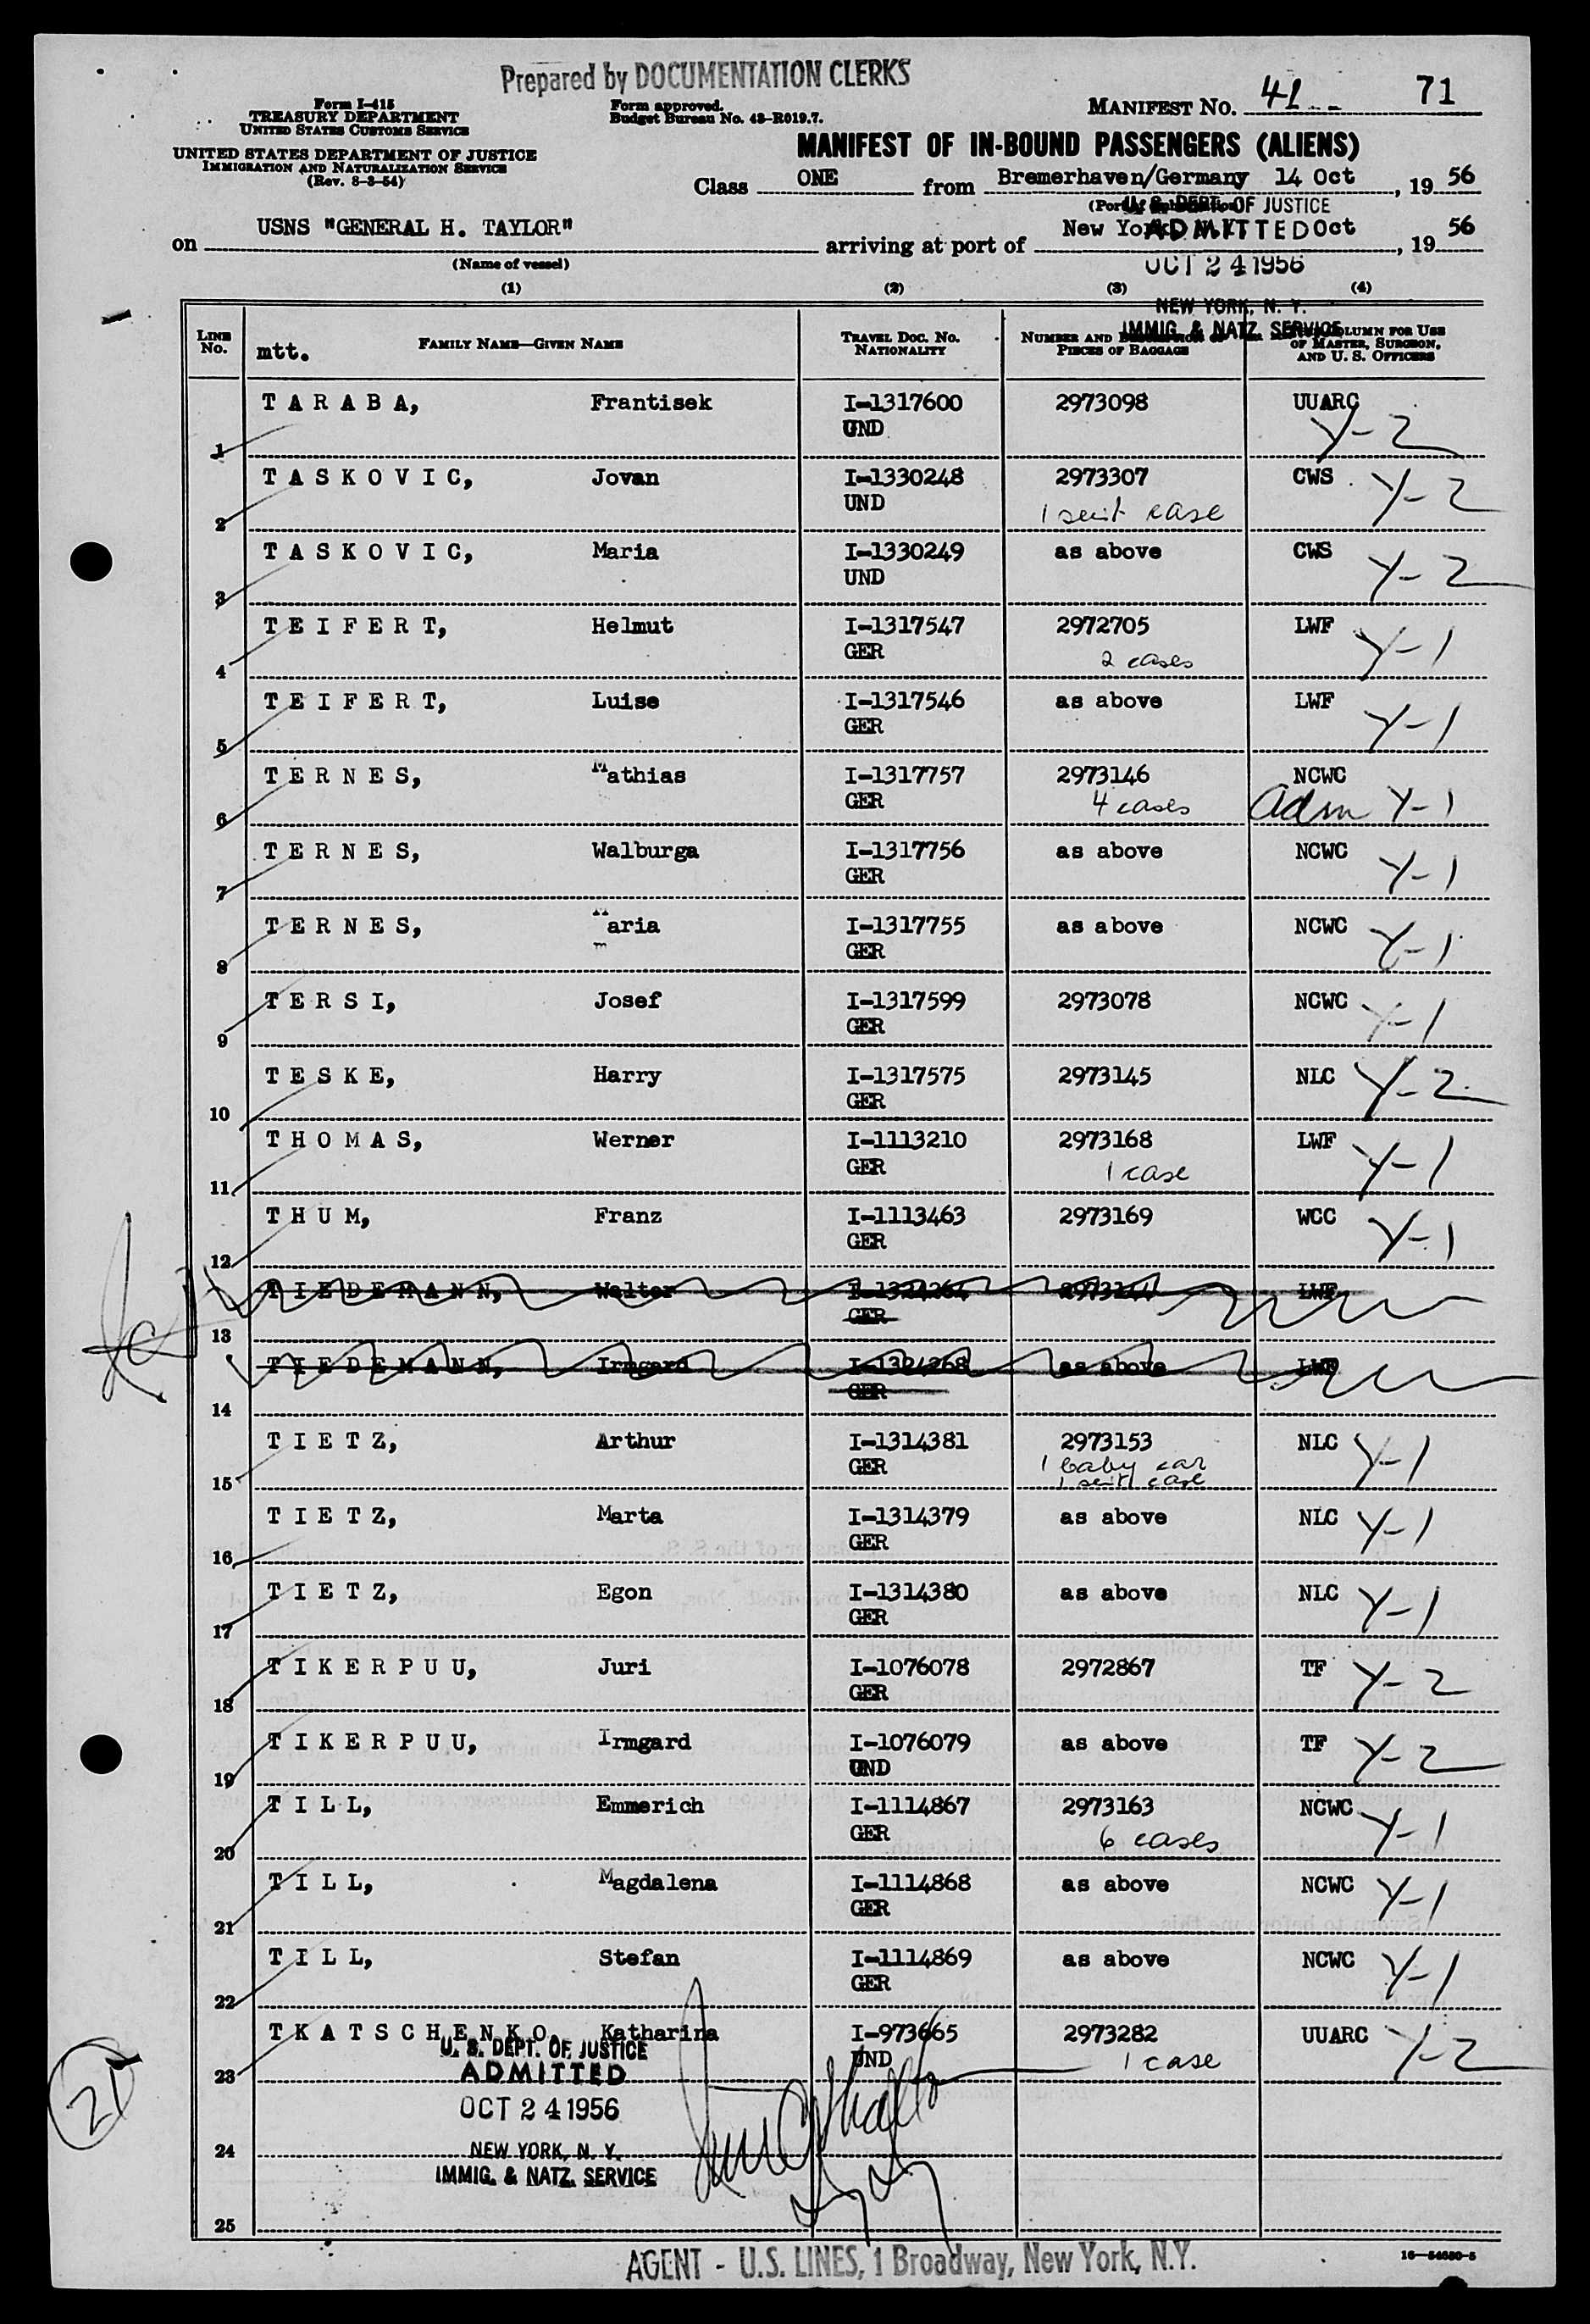 Prepared by DOCUMENTATION CLERKS
Form I-415
TREASURY DEPARTMENT
UNITED STATES CUSTOMS SERVICE
Form approved.
Budget Bureau No. 43-R019.7.
MANIFEST No. 41 71
UNITED STATES DEPARTMENT OF JUSTICE
IMMIGRATION AND NATURALIZATION SERVICE
(Rev. 8-3-54)
MANIFEST OF IN-BOUND PASSENGERS (ALIENS)
Class ONE from Bremerhaven/Germany 14 Oct, 19 56
U. S. DEPT. OF JUSTICE
on USNS "GENERAL H. TAYLOR" arriving at port of New York Oct, 19 56
ADMITTED
(Name of vessel)
OCT 24 1956
(1) (2) (3) (4)
NEW YORK, N. Y.
IMMIG. & NATZ. SERVICE
LINE No. mtt. FAMILY NAME—GIVEN NAME TRAVEL DOC. No. NATIONALITY NUMBER AND PIECES OF BAGGAGE COLUMN FOR USE OF MASTER, SURGEON, AND U. S. OFFICERS
1 TARABA, Frantisek I-1317600 UND 2973098 UUARC Y-2
2 TASKOVIC, Jovan I-1330248 UND 2973307 1 suit case CWS Y-2
3 TASKOVIC, Maria I-1330249 UND as above CWS Y-2
4 TEIFERT, Helmut I-1317547 GER 2972705 2 cases LWF Y-1
5 TEIFERT, Luise I-1317546 GER as above LWF Y-1
6 TERNES, Mathias I-1317757 GER 2973146 4 cases NCWC adm Y-1
7 TERNES, Walburga I-1317756 GER as above NCWC Y-1
8 TERNES, Maria I-1317755 GER as above NCWC Y-1
9 TERSI, Josef I-1317599 GER 2973078 NCWC Y-1
10 TESKE, Harry I-1317575 GER 2973145 NLC Y-2
11 THOMAS, Werner I-1113210 GER 2973168 1 case LWF Y-1
12 THUM, Franz I-1113463 GER 2973169 WCC Y-1
13 TIEDEMANN, Walter GER LWF
14 TIEDEMANN, Irmgard I-1324268 GER as above LWF
15 TIETZ, Arthur I-1314381 GER 2973153 1 baby car 1 suit case NLC Y-1
16 TIETZ, Marta I-1314379 GER as above NLC Y-1
17 TIETZ, Egon I-1314380 GER as above NLC Y-1
18 TIKERPUU, Juri I-1076078 GER 2972867 TF Y-2
19 TIKERPUU, Irmgard I-1076079 UND as above TF Y-2
20 TILL, Emmerich I-1114867 GER 2973163 6 cases NCWC Y-1
21 TILL, Magdalena I-1114868 GER as above NCWC Y-1
22 TILL, Stefan I-1114869 GER as above NCWC Y-1
23 TKATSCHENKO, Katharina I-973665 UND 2973282 1 case UUARC Y-2
U. S. DEPT. OF JUSTICE
ADMITTED
21
OCT 24 1956
24
NEW YORK, N. Y.
IMMIG. & NATZ. SERVICE
25
AGENT - U.S. LINES, 1 Broadway, New York, N.Y.
16—54680-5